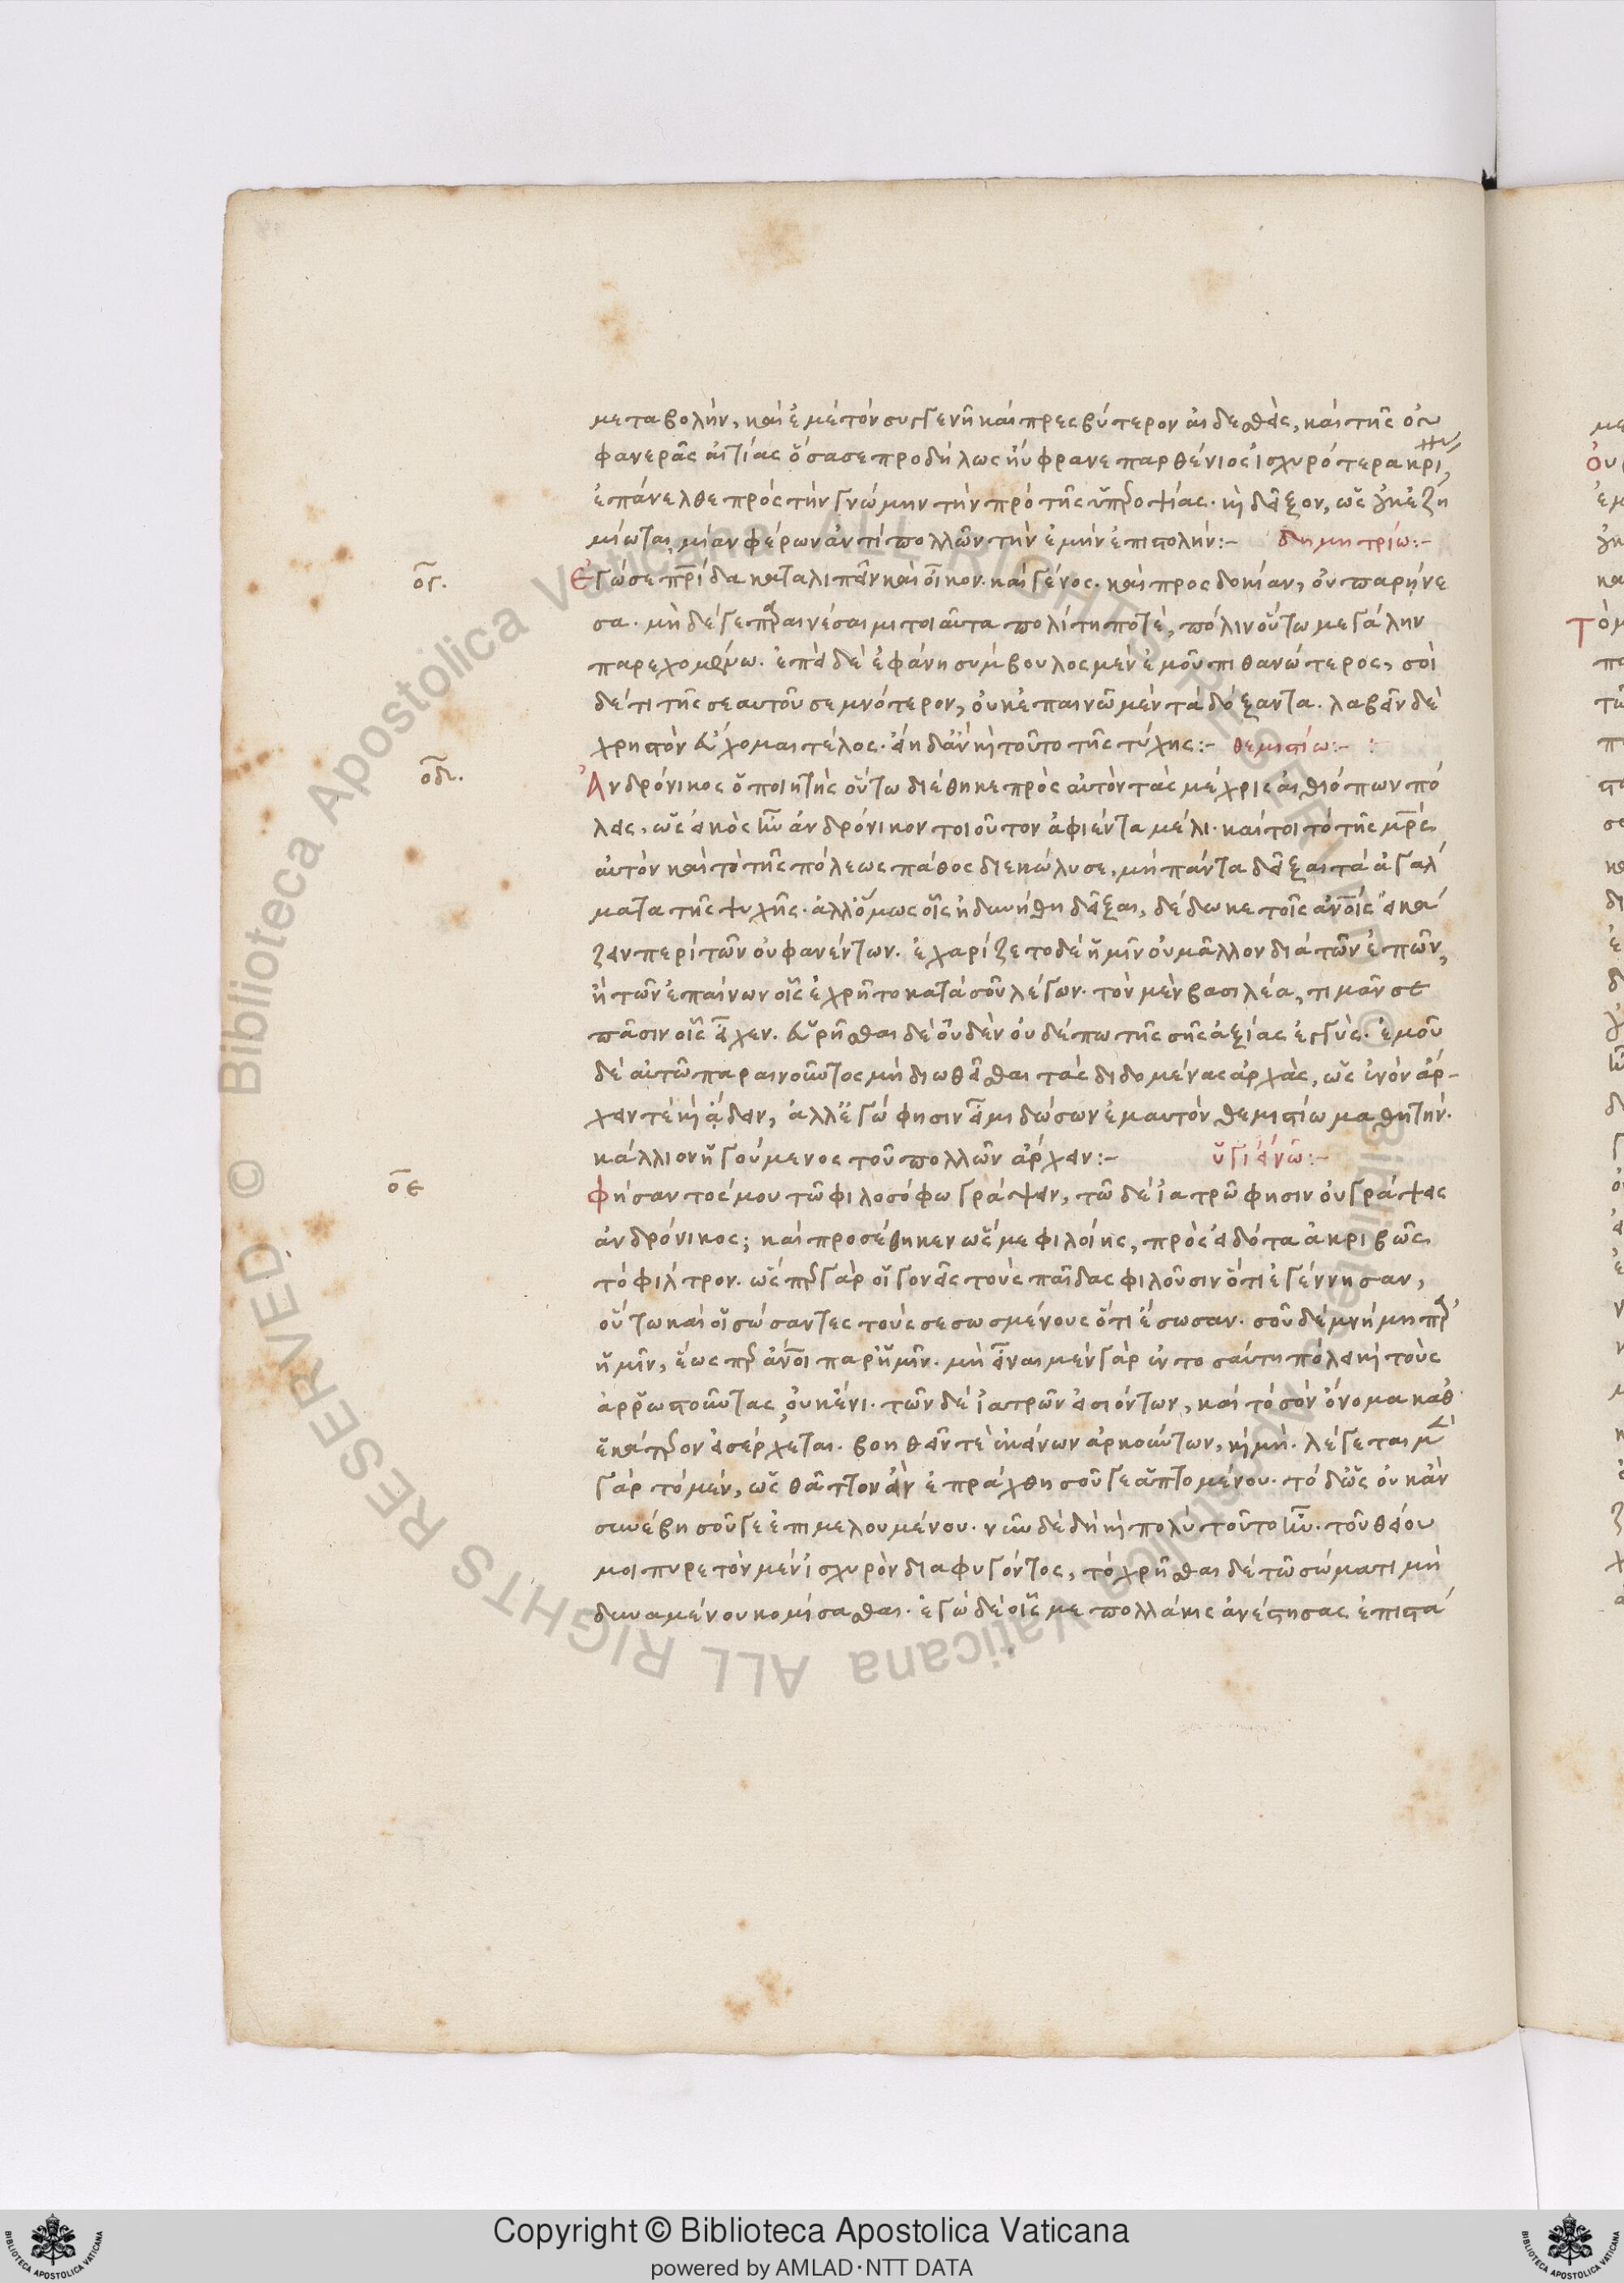 μεταβολὴν, καὶ ἐμὲ τὸν συγγενῆ καὶ πρεσβύτερον αἰδεσθεὶς, καὶ τῆς οὐ
φανερᾶς αἰτίας ὅσα σε προδήλως ηὔφρανε παρθένιος ἰσχυρότερα κρί
ἐπάνελθε πρὸς τὴν γνώμην τὴν πρὸ τῆς ὑποψίας. καὶ δεῖξον, ὡς οὐκ ἐζη
μίωται μίαν φέρων ἀντὶ πολλῶν τὴν ἐμὴν ἐπιστολήν:– δημητρίω:–
ογ. Ἐγώ σε πρίδα καταλιπεῖν καὶ οἶκον. καὶ γένος. καὶ προσδοκίαν, οὐ παρήνε
σα. μηδέ γε πραινέσαιμι τοιαῦτα πολίτη ποτὲ, πόλιν οὕτω μεγάλην
παρεχομένω. ἐπεὶ δὲ ἐφάνη σύμβουλος μὲν ἐμοῦ πιθανώτερος, σοὶ
δέ τι τῆς σεαυτοῦ σεμνότερον, οὐκ ἐπαινῶ μὲν τὰ δόξαντα. λαβεῖν δὲ
χρηστὸν εὔχομαι τέλος. εἴη δ' ἂν καὶ τοῦτο τῆς τύχης:– θεμιστίω:–
οδ. Ἀνδρόνικος ὁ ποιητὴς οὕτω διέθηκε πρὸς αὑτὸν τὰς μέχρις αἰθιόπων πό
λεις, ὡς εἰκὸς ἦν ἀνδρόνικον τοιοῦτον ἀφιέντα μέλι. καίτοι τὸ τῆς μρς
αὐτὸν καὶ τὸ τῆς πόλεως πάθος διεκώλυσε, μὴ πάντα δεῖξαι τὰ ἀγάλ
ματα τῆς ψυχῆς. ἀλλ' ὅμως οἷς ἠδυνήθη δεῖξαι, δέδωκε τοῖς ανοις εἰκά
ζειν περὶ τῶν οὐ φανέντων. ἐχαρίζετο δὲ ἡμῖν οὐ μᾶλλον διὰ τῶν ἐπῶν,
ἢ τῶν ἐπαίνων οἷς ἐχρῆτο κατὰ σοῦ λέγων. τὸν μὲν βασιλέα, τιμᾶν σε
πᾶσιν οἷς εἶχεν. εὑρῆσθαι δὲ οὐδὲν οὐδέπω τῆς σῆς ἀξίας ἐγγύς. ἐμοῦ
δὲ αὐτῶ παραινοῦντος μὴ διωθεῖσθαι τὰς διδομένας ἀρχὰς, ὡς ἐνὸν ἄρ–
χειν τὲ καὶ ᾄδειν, ἀλλ' ἐγώ φησιν εἶμι δώσων ἐμαυτὸν θεμιστίω μαθητὴν.
κάλλιον ἡγούμενος τοῦ πολλῶν ἄρχειν:– ὑγιεινῶ:–
οε Φήσαντος ἐμου τῶ φιλοσόφω γράψειν, τῶ δὲ ἰατρῶ φησιν οὐ γράψεις
ἀνδρόνικος; καὶ προσέθηκεν ὥς με φιλοίης, πρὸς εἰδότα ἀκριβῶς
τὸ φίλτρον. ὥσπερ γὰρ οἱ γονεῖς τοὺς παῖδας φιλοῦσιν ὅτι ἐγέννησαν,
οὕτω καὶ οἱ σώσαντες τοὺς σεσωσμένους ὅτι ἔσωσαν. σοῦ δὲ μνήμη πρ
ἡμῖν, ἕως πρ ανοι παρ' ἡμῖν. μὴ εἶναι μὲν γὰρ ἐν τοσαύτη πόλει καὶ τοὺς
ἀρρωστοῦντας, οὐκ ἔνι. τῶν δὲ ἰατρῶν εἰσιόντων, καὶ τὸ σὸν ὄνομα καθ'
ἕκάτερον εἰσέρχεται. βοηθεῖν τὲ ἐκείνων ἀρκούντων, καὶ μὴ. λέγεται μ
γὰρ τὸ μὲν, ὡς θᾶττον ἂν ἐπράχθη σοῦ γε ἁπτομένου. τὸ δ' ὡς οὐκ ἂν
συνέβη σοῦ γε ἐπιμελουμένου. νῦν δὲ δὴ καὶ πολὺ τοῦτο ἦν. τοῦ θείου
μοι πυρετὸν μὲν ἰσχυρὸν διαφυγόντος, τὸ χρῆσθαι δὲ τῶ σώματι μὴ
δυναμένου κομίσασθαι. ἐγὼ δὲ οἷς με πολλάκις ἀνέστησας ἐπιστά
© Biblioteca Apostolica Vaticana ALL RIGHTS RESERVED
Copyright © Biblioteca Apostolica Vaticana
powered by AMLAD·NTT DATA